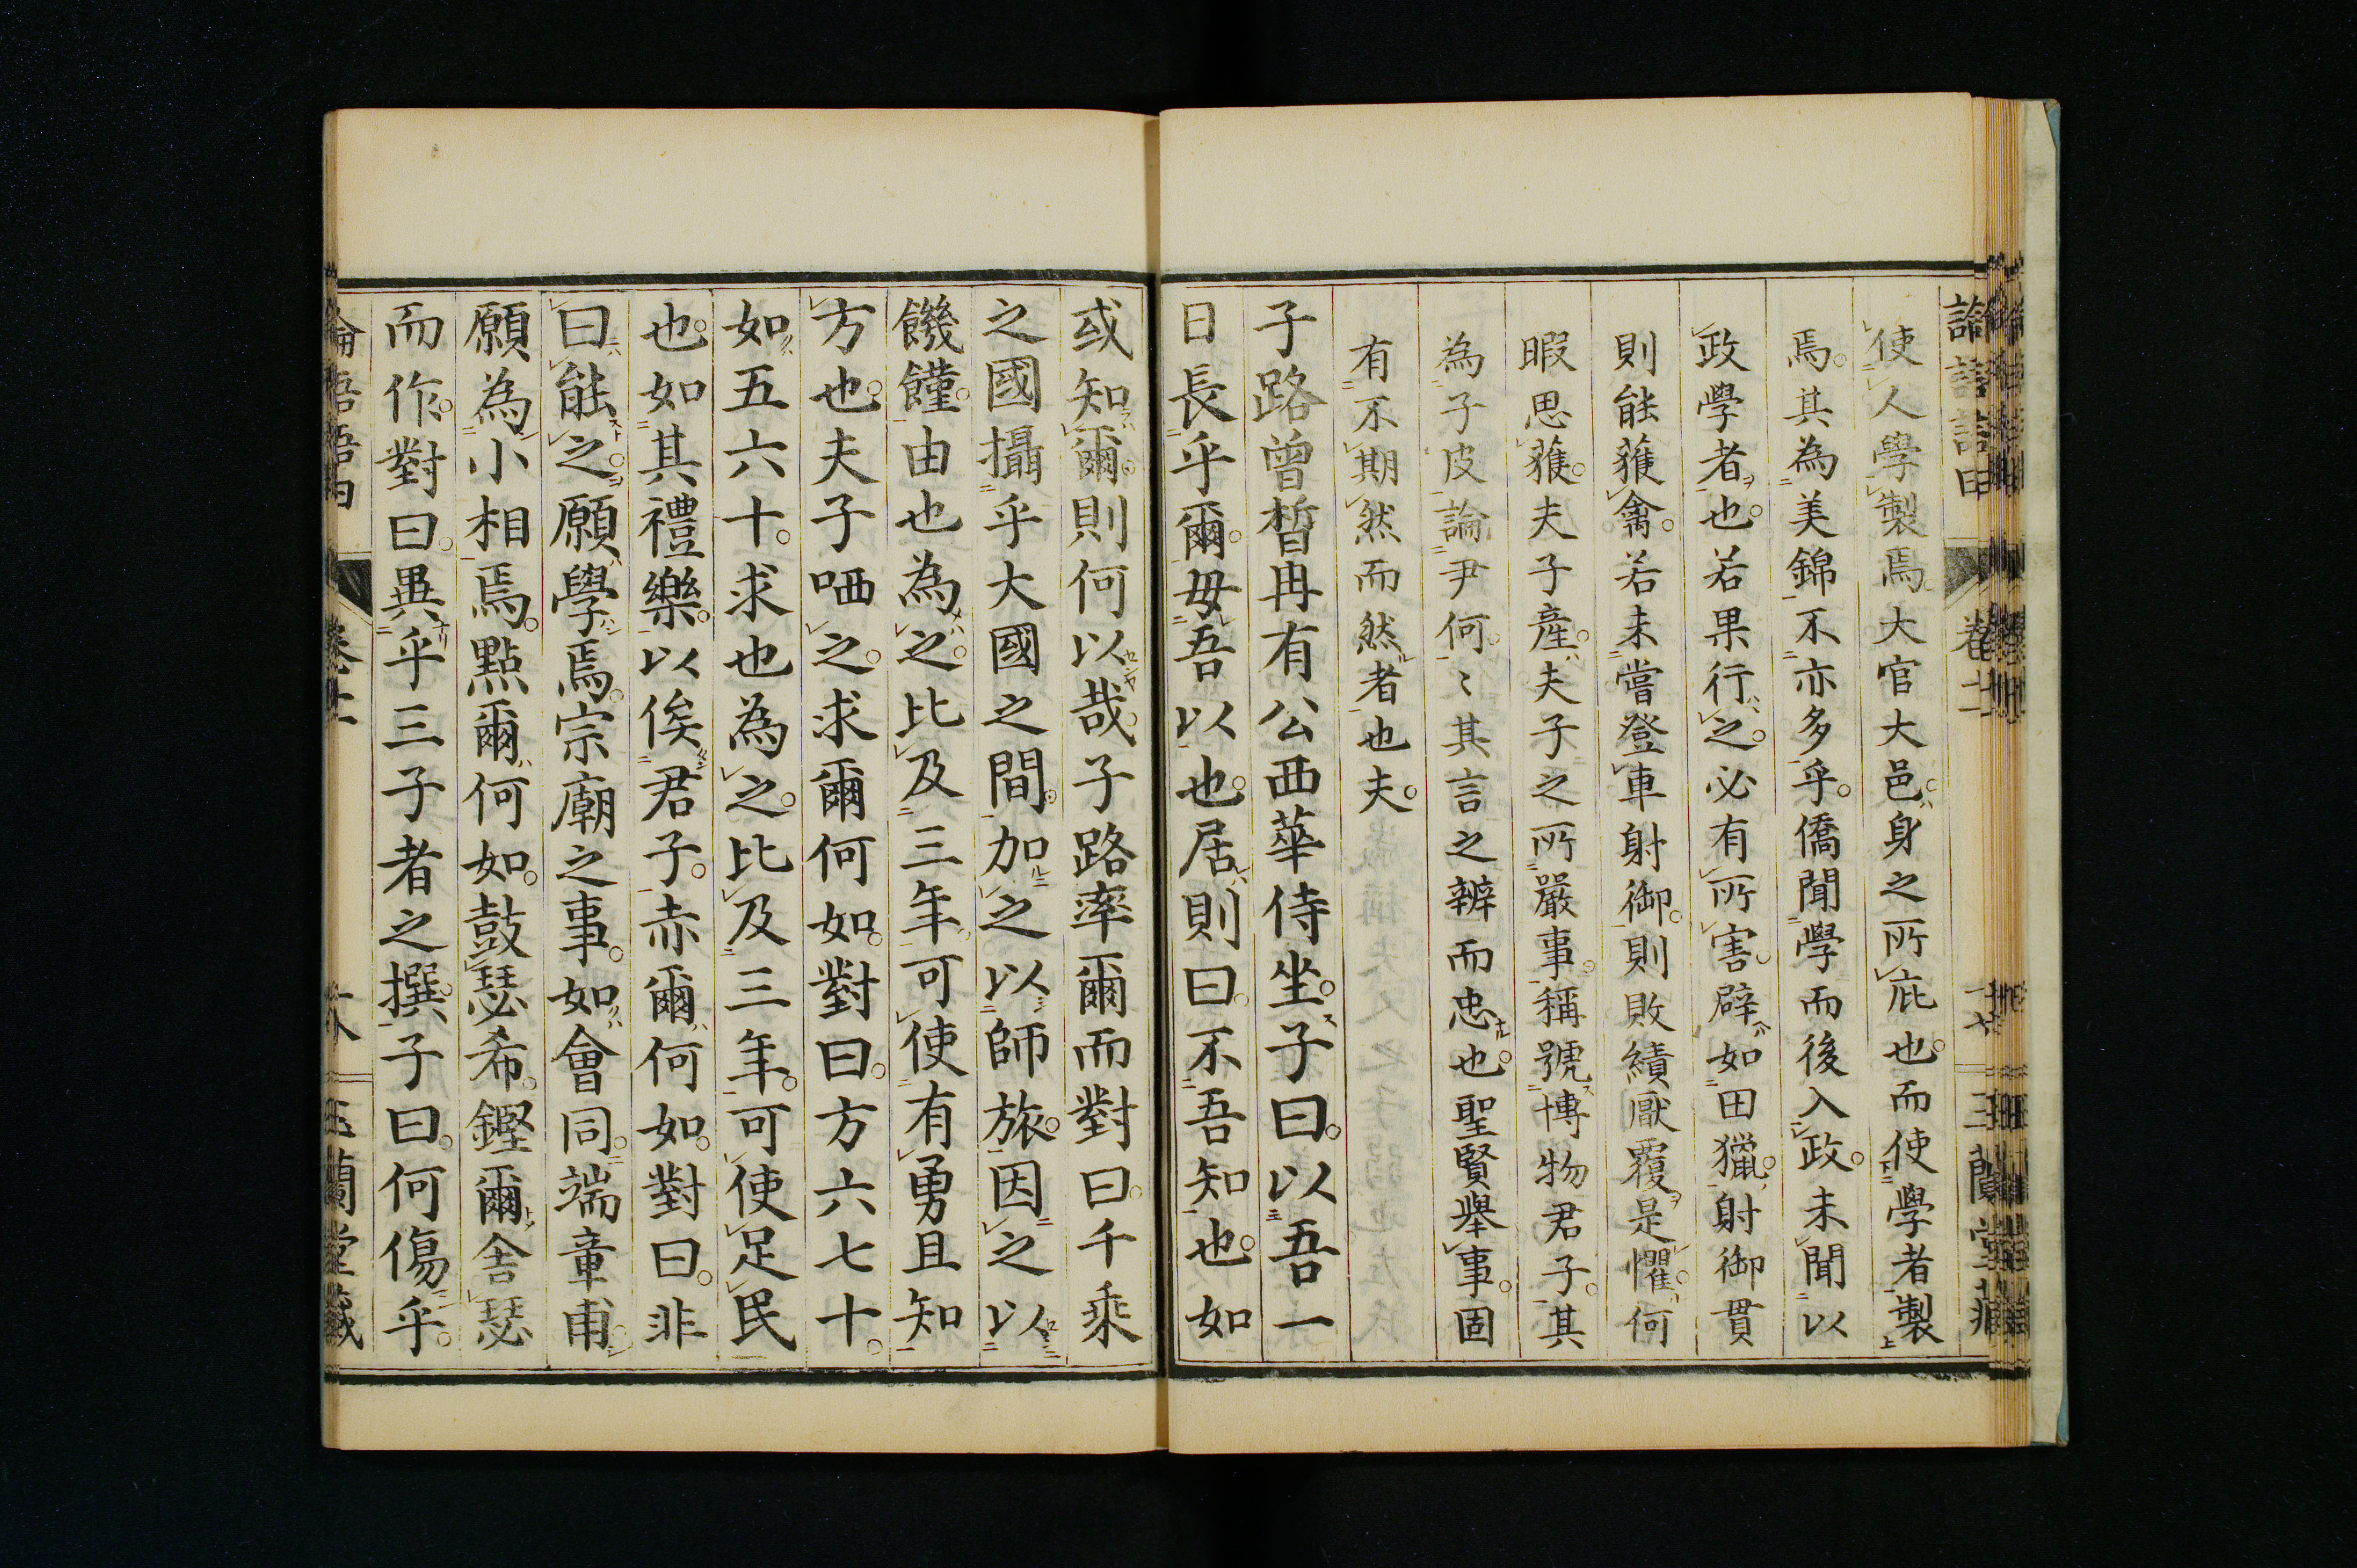 使人學製焉大官大邑身之所庇也而使學者製
焉其為美錦不亦多乎僑聞學而後入政未聞以
政學者也若果行之必有所害辟如田獵射御貫
則能獲禽若未嘗登車射御則敗績厭覆是懼何
暇思獲夫子產夫子之所嚴事稱號博物君子其
為子皮論尹何〻其言之辨而忠也聖賢舉事固
有不期然而然者也夫
子路曾晳冉有公西華侍坐子曰以吾一
日長乎爾毋吾以也居則曰不吾知也如
或知爾則何以哉子路率爾而對曰千乘
之國攝乎大國之間加之以師旅因之以
饑饉由也為之比及三年可使有勇且知
方也夫子哂之求爾何如對曰方六七十
如五六十求也為之比及三年可使足民
也如其禮樂以俟君子赤爾何如對曰非
曰能之願學焉宗廟之事如會同端章甫
願為小相焉點爾何如鼓瑟希鏗爾舍瑟
而作對曰異乎三子者之撰子曰何傷乎